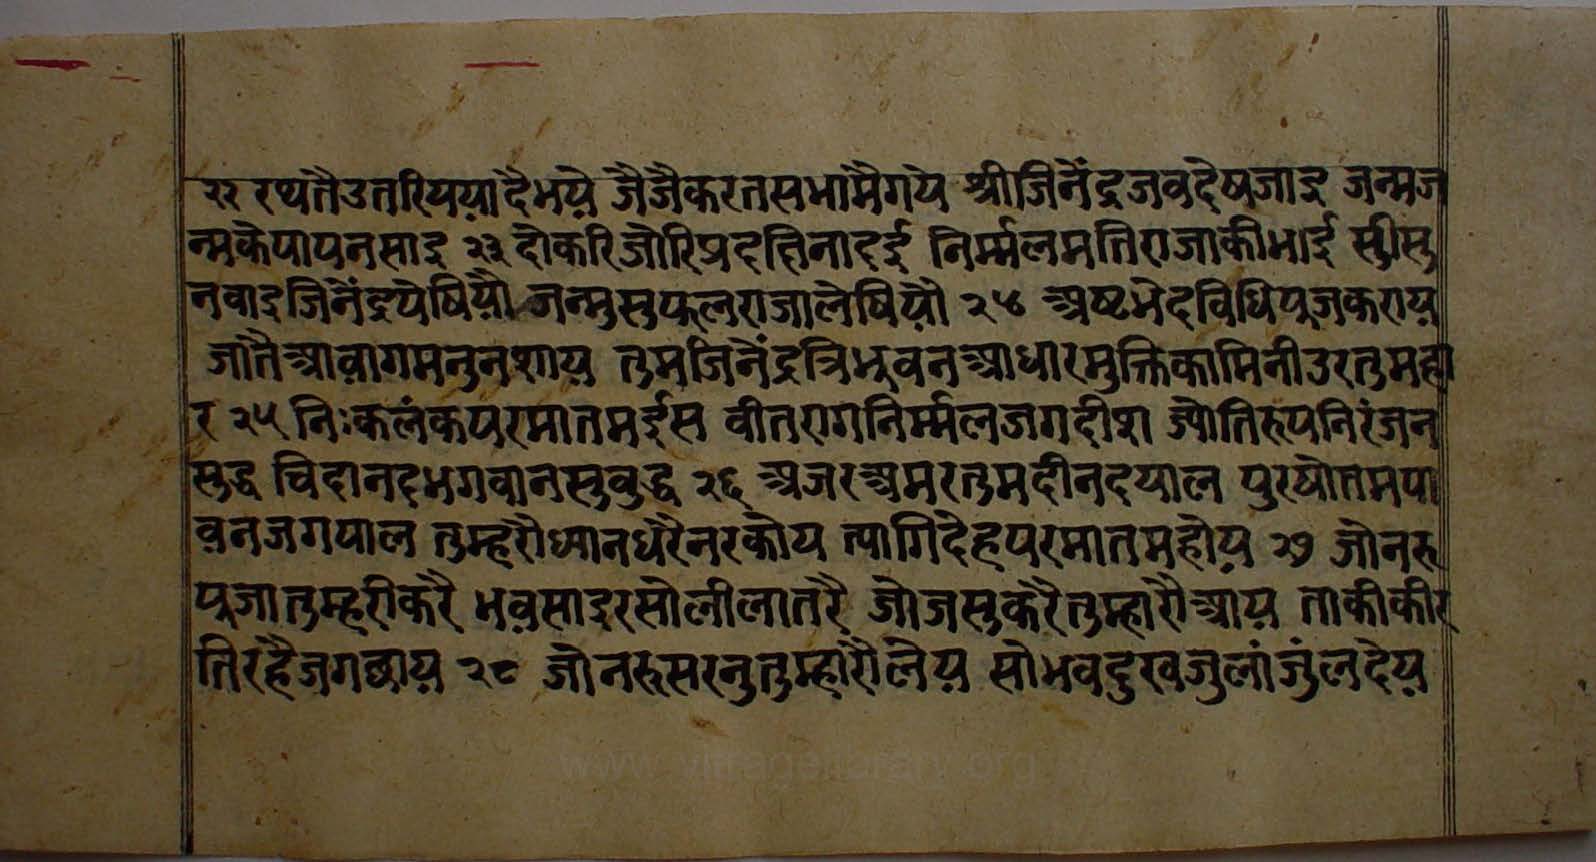 २२ रथतैउतरिपय़ादैभय़े जैजैकरतसभामैगये श्रीजिनैंद्रजवदेषजाइ जन्मज
न्मकेपापनसाइ २३ दोकरिजोरिप्रदछिनादई निर्म्मलमतिराजाकीभाई सुीसु
नवाइजिनैंद्रपेषिय़ौ जन्मुसुफलराजालेषिय़ौ २४ अष्टभेदविधिपूजकराय़
जातैआव़ागमनुनशाय़ तुमजिनैंद्रत्रिभुवनआधारमुक्तिकामिनीउरतुमहा
र २५ निःकलंकपरमातमईस वीतरागनिर्म्मलजगदीश ज्योतिरुपनिरंजन
सुद्ध चिदानदभगवानसुवुद्ध २६ अजरअमरतुमदीनदयाल पुरषोतमपा
व़नजगपाल तुम्हरौध्यानधरैनरकोय त्यागिदेहपरमातमहोय़ २७ जोनरु
पूजातुम्हरीकरै भव़साइरसोलीलातरै जोजसुकरैतुम्हारौआय़ ताकीकीर
तिरहैजगछाय़ २८ जोनरुसरनुतुम्हारौलेय़ सोभवदुखजुलांजुंलदेय़
www.vitragelibrary.org